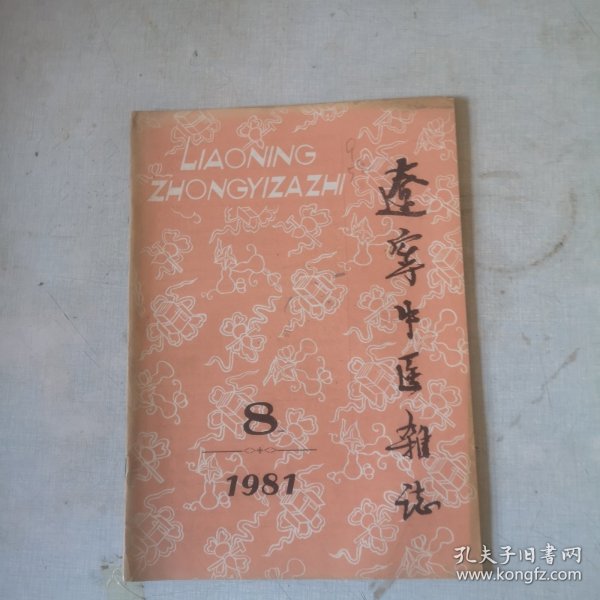 LIAONING
ZHONGYIZAZHI
遼寧中医雜誌
8
1981
孔夫子旧书网
www.kongfz.com